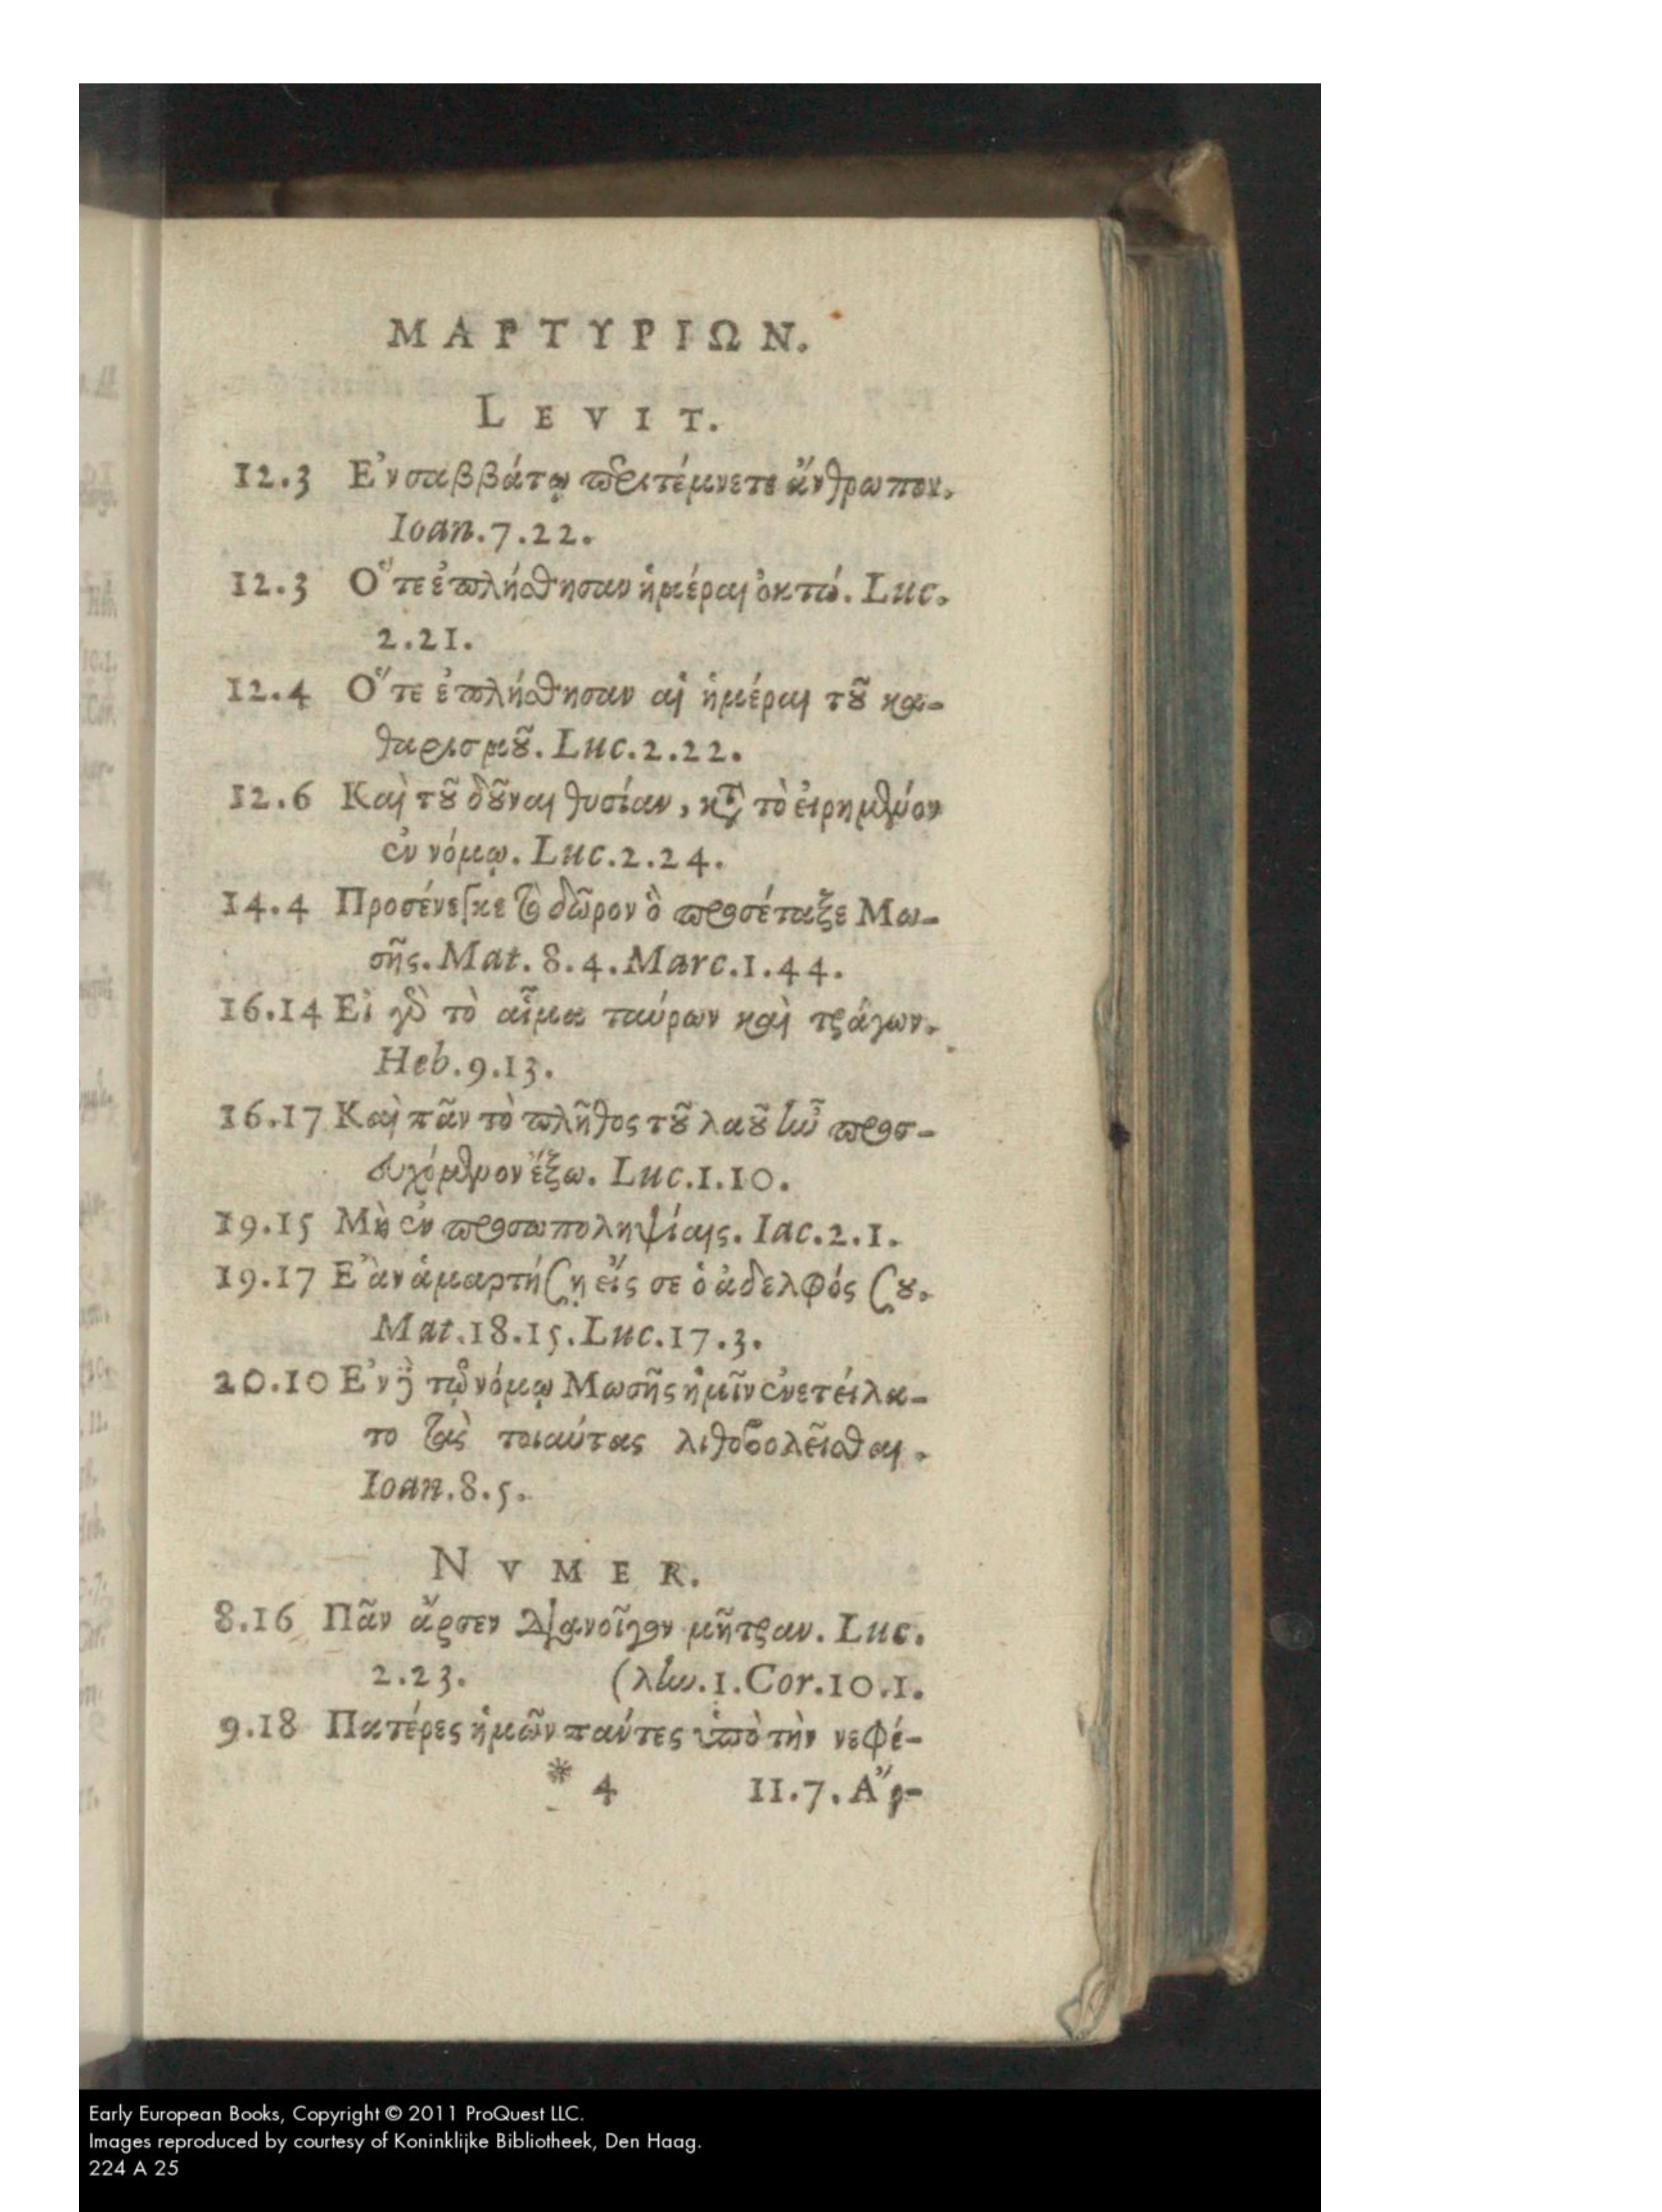 ΜΑΡΤΥΡΙΩΝ.
LEVIT.
12.3 Ἐν σαββάτῳ περιτέμνετε ἄνθρωπον.
Ioan.7.22.
12.3 Ὅτε ἐπλήσθησαν ἡμέραι ὀκτώ. Luc.
2.21.
12.4 Ὅτε ἐπλήσθησαν αἱ ἡμέραι τοῦ κα-
θαρισμοῦ. Luc.2.22.
12.6 Καὶ τοῦ δοῦναι θυσίαν, κατὰ τὸ εἰρημένον
ἐν νόμῳ. Luc.2.24.
14.4 Προσένεγκε τὸ δῶρον ὃ προσέταξε Μω-
σῆς. Mat. 8.4. Marc.1.44.
16.14 Εἰ γὰρ τὸ αἷμα ταύρων καὶ τράγων.
Heb.9.13.
16.17 Καὶ πᾶν τὸ πλῆθος τοῦ λαοῦ ἦν προσ-
ευχόμενον ἔξω. Luc.1.10.
19.15 Μὴ ἐν προσωποληψίαις. Iac.2.1.
19.17 Ἐὰν ἁμαρτήσῃ εἴς σε ὁ ἀδελφός σου.
Mat.18.15. Luc.17.3.
20.10 Ἐν δὲ τῷ νόμῳ Μωσῆς ἡμῖν ἐνετείλα-
το τὰς τοιαύτας λιθοβολεῖσθαι.
Ioan.8.5.
NVMER.
8.16 Πᾶν ἄρσεν διανοῖγον μήτραν. Luc.
2.23. (λην. 1.Cor.10.1.
9.18 Πατέρες ἡμῶν πάντες ὑπὸ τὴν νεφέ-
* 4 11.7. Ἄρ-
Early European Books, Copyright © 2011 ProQuest LLC.
Images reproduced by courtesy of Koninklijke Bibliotheek, Den Haag.
224 A 25